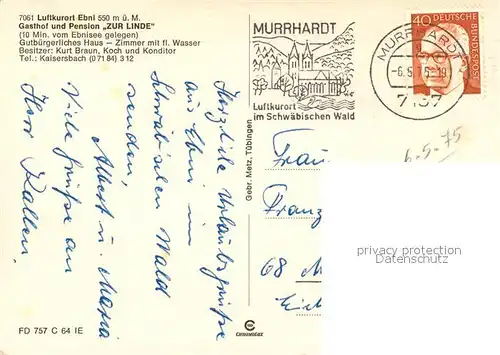 7061 Luftkurort Ebni 550 m ü. M.
Gasthof und Pension „ZUR LINDE"
(10 Min. vom Ebnisee gelegen)
Gutbürgerliches Haus — Zimmer mit fl. Wasser
Besitzer: Kurt Braun, Koch und Konditor
Tel.: Kaisersbach (071 84) 3 12
MURRHARDT
Luftkurort
im Schwäbischen Wald
MURRHARDT
-6.5.75-19
7157
40 DEUTSCHE
BUNDESPOST
6.5.75
Herzliche Urlaubsgrüße
aus Ebni im
Schwäbischen Wald
senden,
Albert u. Maria
Viele Grüße an
Herr Kallen.
Gebr. Metz, Tübingen
Frau
Franz
68 M
privacy protection
ansichtskartenlexikon.de
FD 757 C 64 IE